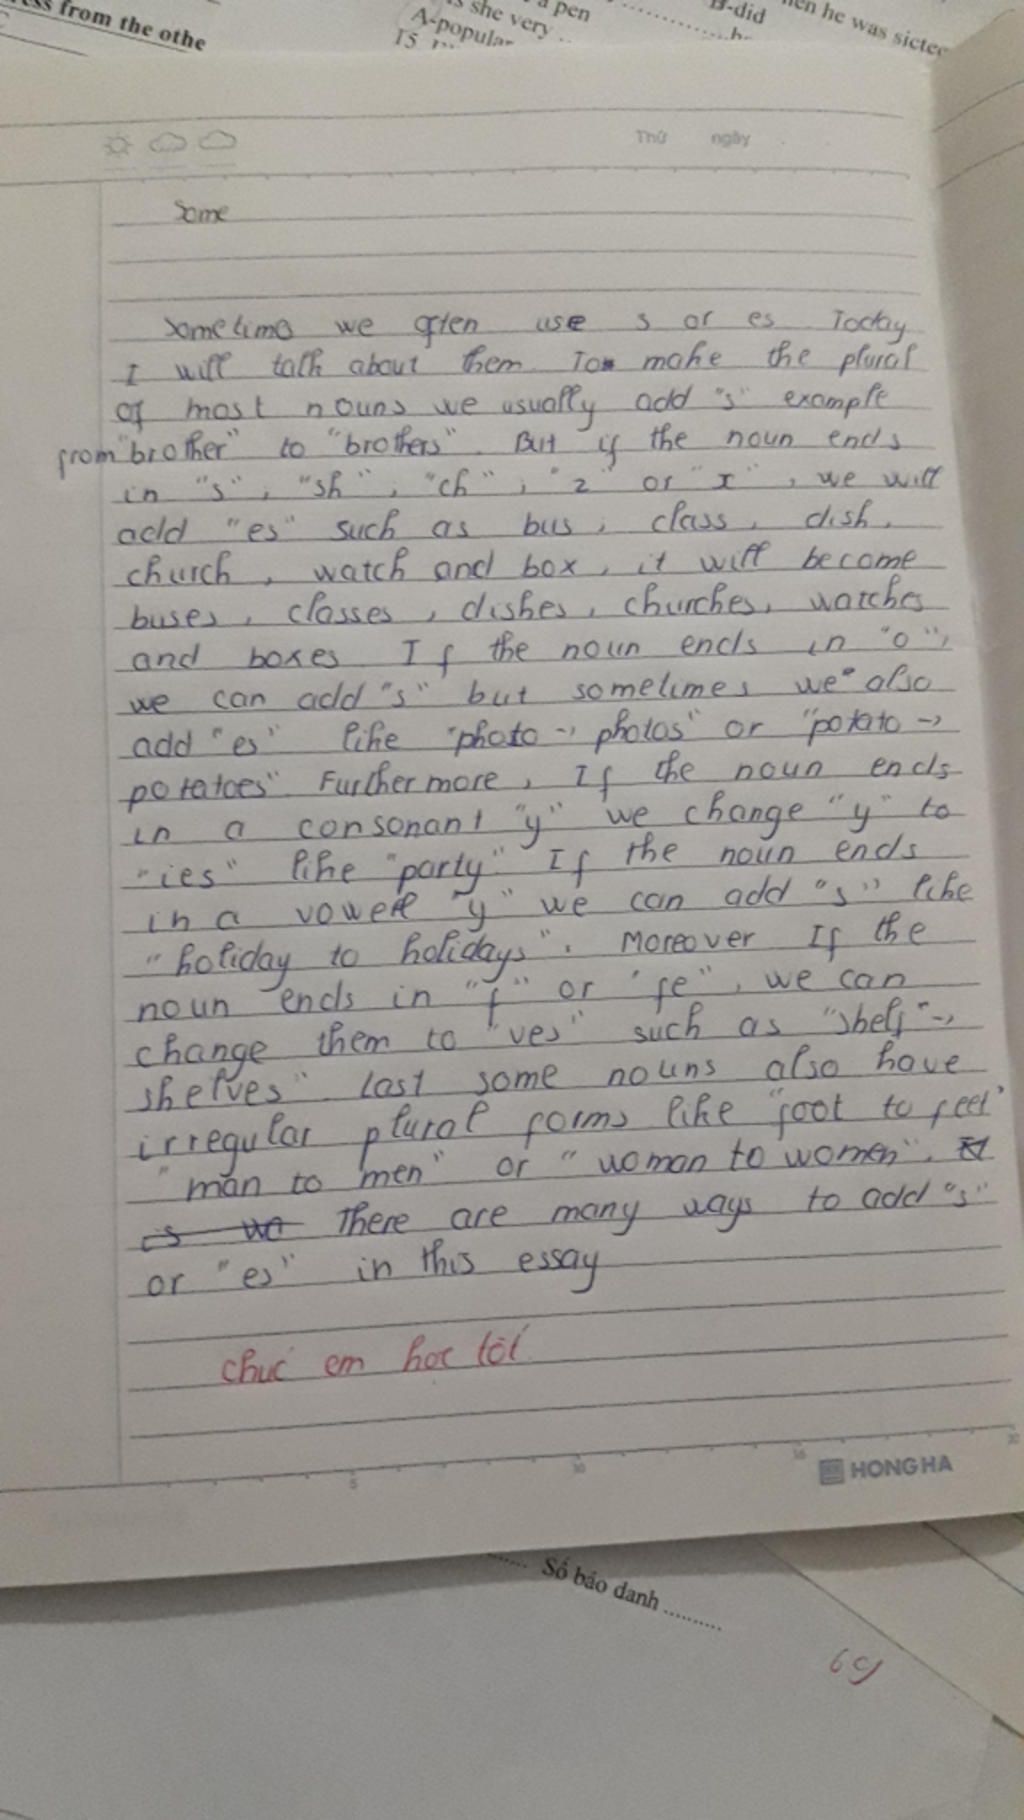 ss from the othe
s she very ..
A-popular
15
a pen
B-did
en he was sicter
Thứ ngày
Some
Sometime we often use s or es Today
I will talk about them To make the plural
of most nouns we usually add "s" example
from "brother" to "brothers". But if the noun ends
in "s", "sh", "ch", "z" or "x", we will
add "es" such as bus, class, dish,
church, watch and box, it will become
buses, classes, dishes, churches, watches
and boxes If the noun ends in "o",
we can add "s" but sometimes we also
add "es" like "photo -> photos" or "potato ->
potatoes" Furthermore, If the noun ends
in a consonant "y" we change "y" to
"ies" like "party" If the noun ends
in a vowell "y" we can add "s" like
"holiday to holidays". Moreover If the
noun ends in "f" or "fe", we can
change them to "ves" such as "shelf" ->
shelves" last some nouns also have
irregular plural forms like "foot to feet"
"man to men" or "woman to women".
is we There are many ways to add "s"
or "es" in this essay
chúc em học tốt
5 10 15 20
HONG HA
Số báo danh